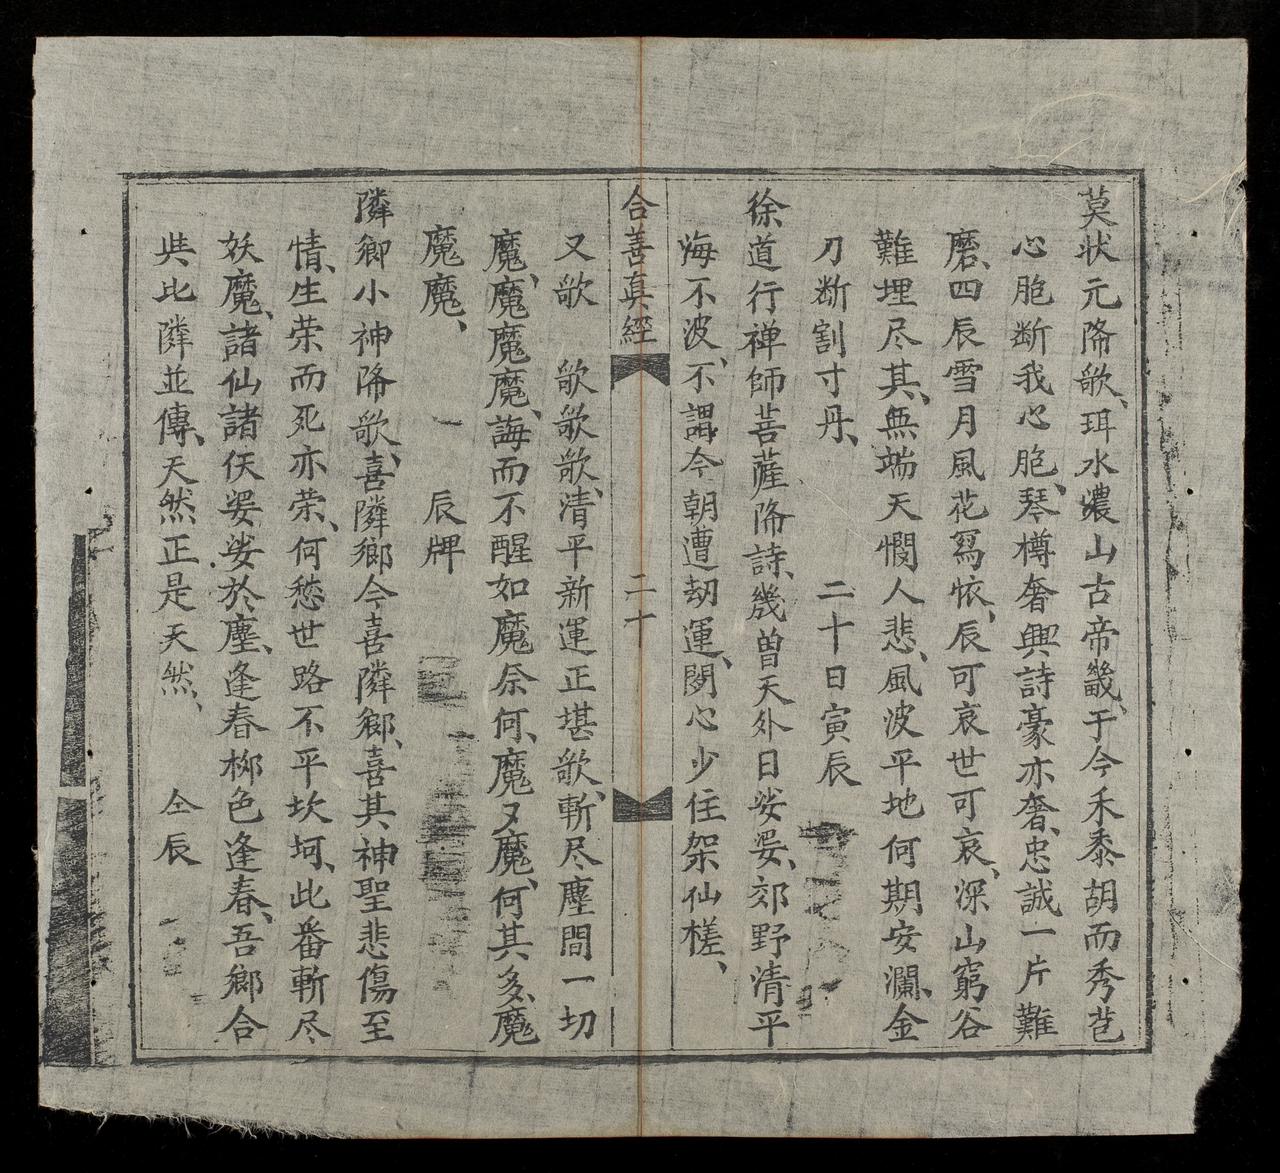 莫状元降歌、珥水濃山古帝畿、于今禾黍胡而秀芑
心胞断我心胞、琴樽奢興詩豪亦奢、忠誠一片難
磨、四辰雪月風花寫懷、辰可哀世可哀、深山窮谷
難埋尽其、無端天憫人悲、風波平地何期安瀾、金
刀断割寸丹、 二十日寅辰
徐道行禅師菩薩降詩、幾曽天外日娑婆、郊野清平
海不波、不謂今朝遭刼運、関心少住架仙槎、
合善真經 二十
又歌 歌歌歌、清平新運正堪歌、斬尽塵間一切
魔、魔魔魔、誨而不醒如魔奈何、魔又魔、何其多、魔
魔魔、 辰牌
隣鄉小神降歌、喜隣鄉今喜隣鄉、喜其神聖悲傷至
情、生荣而死亦荣、何愁世路不平坎坷、此番斬尽
妖魔、諸仙諸仸婆娑於塵、逢春柳色逢春、吾鄉合
與比隣並傳、天然正是天然、 仝辰